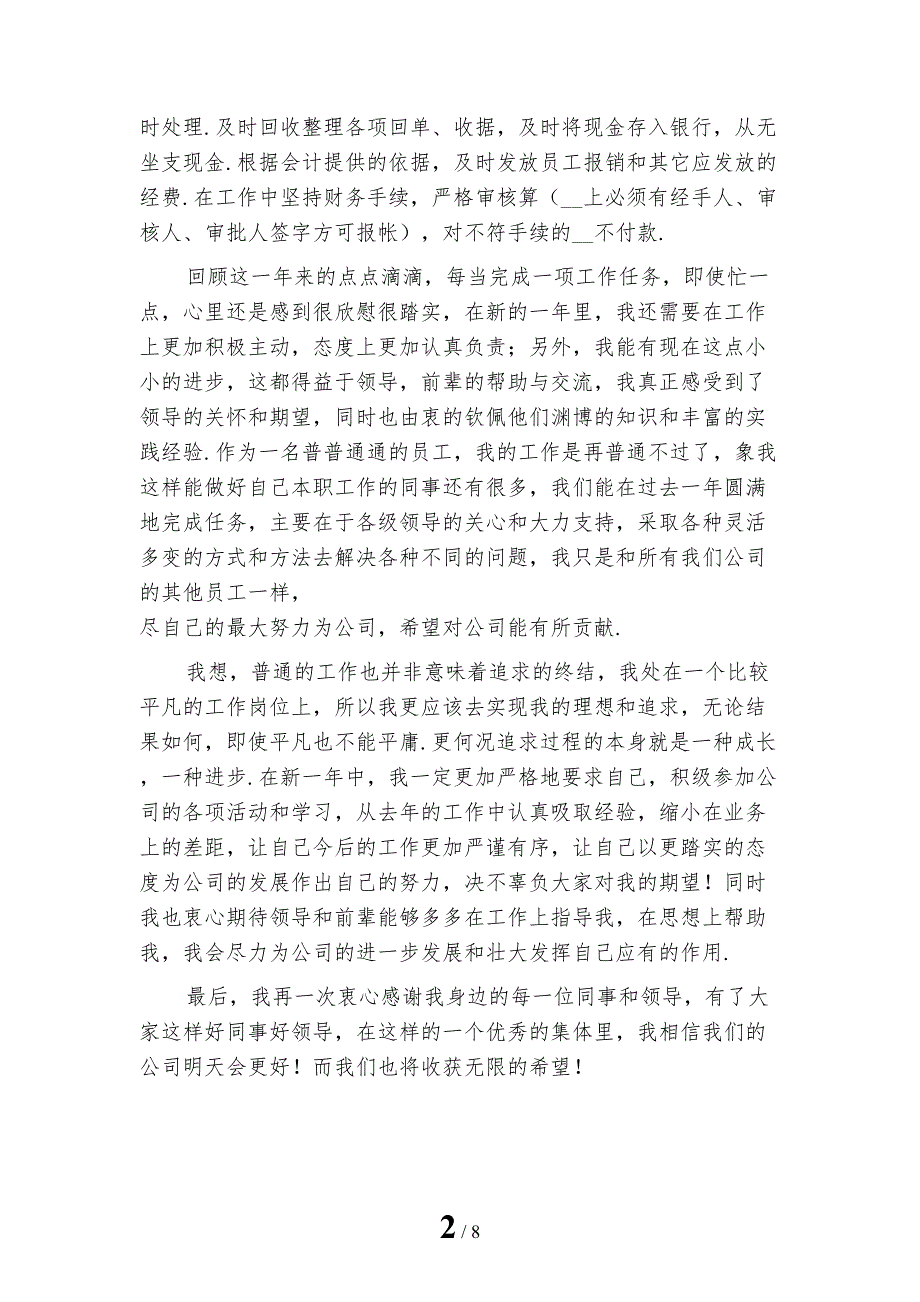 时处理.及时回收整理各项回单、收据，及时将现金存入银行，从无
坐支现金.根据会计提供的依据，及时发放员工报销和其它应发放的
经费.在工作中坚持财务手续，严格审核算（__上必须有经手人、审
核人、审批人签字方可报帐），对不符手续的__不付款.
回顾这一年来的点点滴滴，每当完成一项工作任务，即使忙一
点，心里还是感到很欣慰很踏实，在新的一年里，我还需要在工作
上更加积极主动，态度上更加认真负责；另外，我能有现在这点小
小的进步，这都得益于领导，前辈的帮助与交流，我真正感受到了
领导的关怀和期望，同时也由衷的钦佩他们渊博的知识和丰富的实
践经验.作为一名普普通通的员工，我的工作是再普通不过了，象我
这样能做好自己本职工作的同事还有很多，我们能在过去一年圆满
地完成任务，主要在于各级领导的关心和大力支持，采取各种灵活
多变的方式和方法去解决各种不同的问题，我只是和所有我们公司
的其他员工一样，
尽自己的最大努力为公司，希望对公司能有所贡献.
我想，普通的工作也并非意味着追求的终结，我处在一个比较
平凡的工作岗位上，所以我更应该去实现我的理想和追求，无论结
果如何，即使平凡也不能平庸.更何况追求过程的本身就是一种成长
，一种进步.在新一年中，我一定更加严格地要求自己，积级参加公
司的各项活动和学习，从去年的工作中认真吸取经验，缩小在业务
上的差距，让自己今后的工作更加严谨有序，让自己以更踏实的态
度为公司的发展作出自己的努力，决不辜负大家对我的期望！同时
我也衷心期待领导和前辈能够多多在工作上指导我，在思想上帮助
我，我会尽力为公司的进一步发展和壮大发挥自己应有的作用.
最后，我再一次衷心感谢我身边的每一位同事和领导，有了大
家这样好同事好领导，在这样的一个优秀的集体里，我相信我们的
公司明天会更好！而我们也将收获无限的希望！
2 / 8